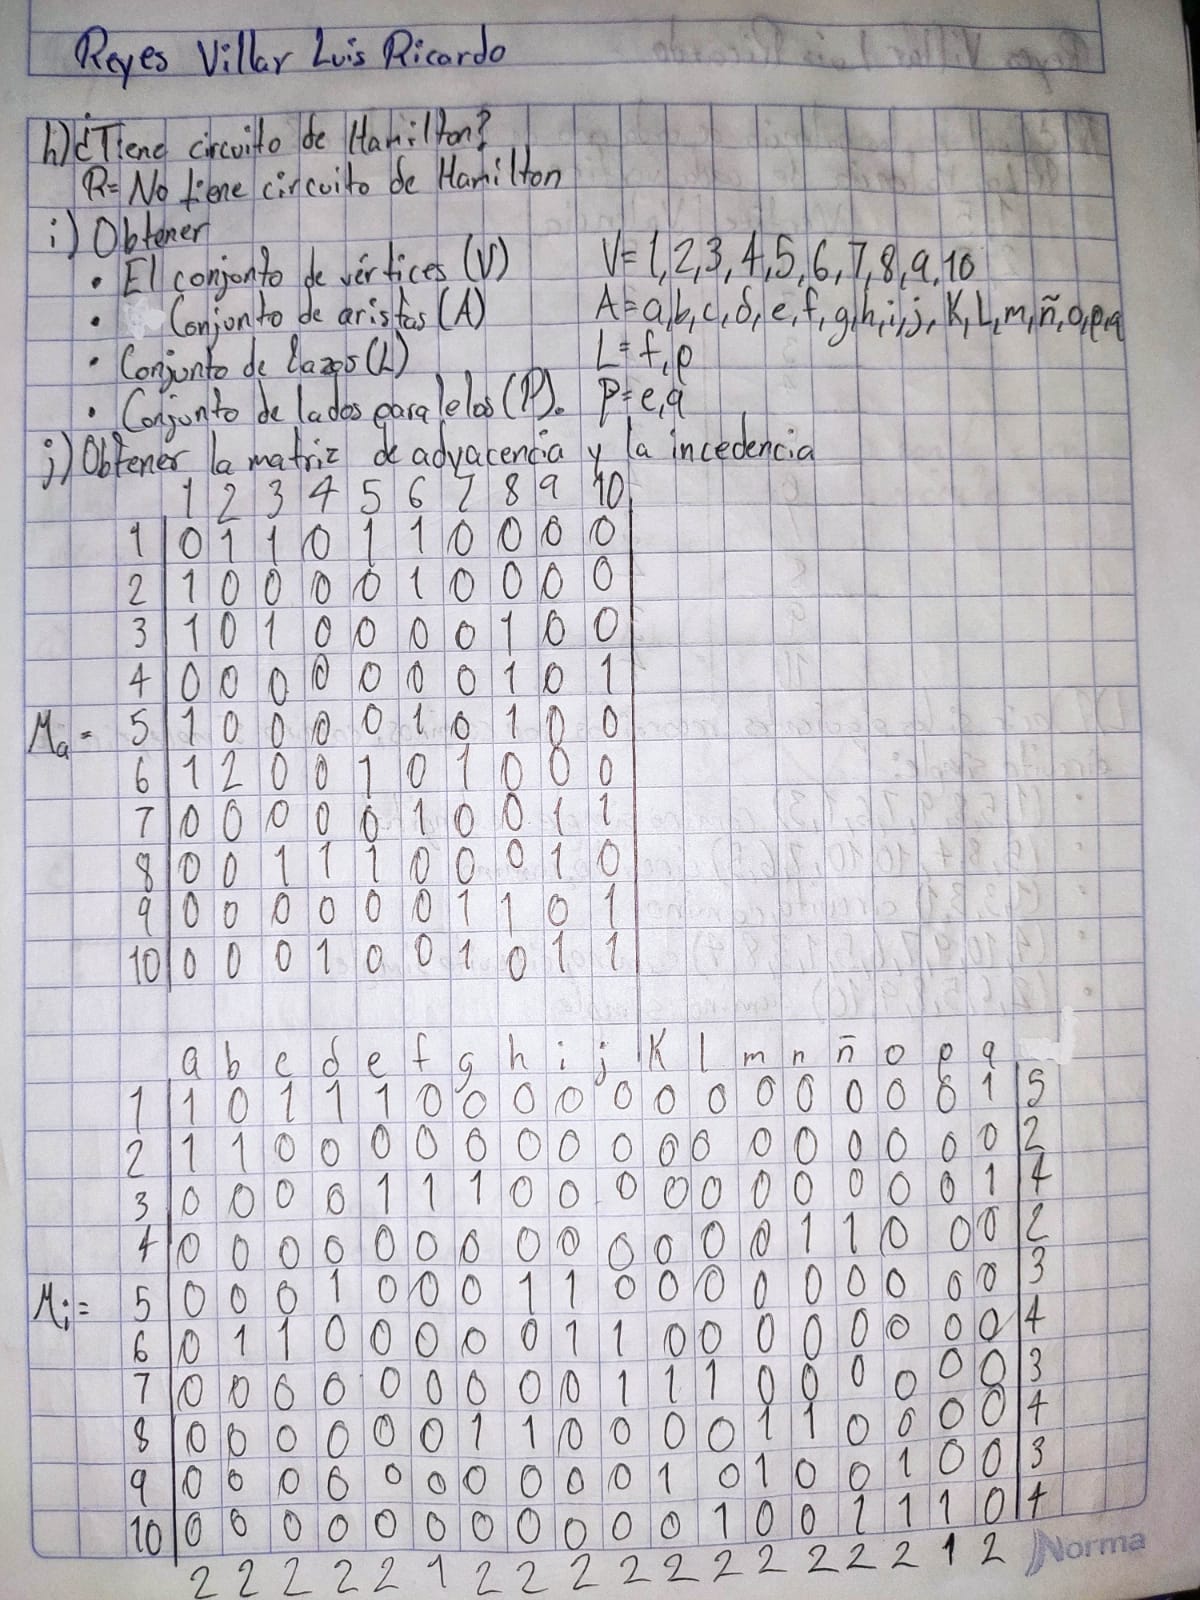 Reyes Villar Luis Ricardo
h) ¿Tiene circuito de Hamilton?
R= No tiene circuito de Hamilton
i) Obtener
• El conjunto de vértices (V) V= 1,2,3,4,5,6,7,8,9,10
• Conjunto de aristas (A) A= a,b,c,d,e,f,g,h,i,j,K,L,m,ñ,o,p,q
• Conjunto de lazos (L) L= f,p
• Conjunto de lados paralelos (P). P= e,q
j) Obtener la matriz de adyacencia y la incedencia
1 2 3 4 5 6 7 8 9 10
1 0 1 1 0 1 1 0 0 0 0
2 1 0 0 0 0 1 0 0 0 0
3 1 0 1 0 0 0 0 1 0 0
4 0 0 0 0 0 0 0 1 0 1
Ma = 5 1 0 0 0 0 1 0 1 0 0
6 1 2 0 0 1 0 1 0 0 0
7 0 0 0 0 0 1 0 0 1 1
8 0 0 1 1 1 0 0 0 1 0
9 0 0 0 0 0 0 1 1 0 1
10 0 0 0 1 0 0 1 0 1 1
a b c d e f g h i j K l m n ñ o p q
1 1 0 1 1 1 0 0 0 0 0 0 0 0 0 0 0 0 1 5
2 1 1 0 0 0 0 0 0 0 0 0 0 0 0 0 0 0 0 2
3 0 0 0 0 1 1 1 0 0 0 0 0 0 0 0 0 0 1 4
4 0 0 0 0 0 0 0 0 0 0 0 0 0 1 1 0 0 0 2
Mi = 5 0 0 0 1 0 0 0 1 1 0 0 0 0 0 0 0 0 0 3
6 0 1 1 0 0 0 0 0 1 1 0 0 0 0 0 0 0 0 4
7 0 0 0 0 0 0 0 0 0 1 1 1 0 0 0 0 0 0 3
8 0 0 0 0 0 0 1 1 0 0 0 0 1 1 0 0 0 0 4
9 0 0 0 0 0 0 0 0 0 0 1 0 1 0 0 1 0 0 3
10 0 0 0 0 0 0 0 0 0 0 0 1 0 0 1 1 1 0 4
2 2 2 2 2 1 2 2 2 2 2 2 2 2 2 2 1 2
Norma